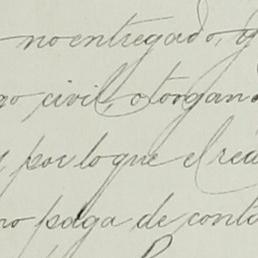 no entregado, y
go civil, otorgan
, por lo que el rea
no paga de conta